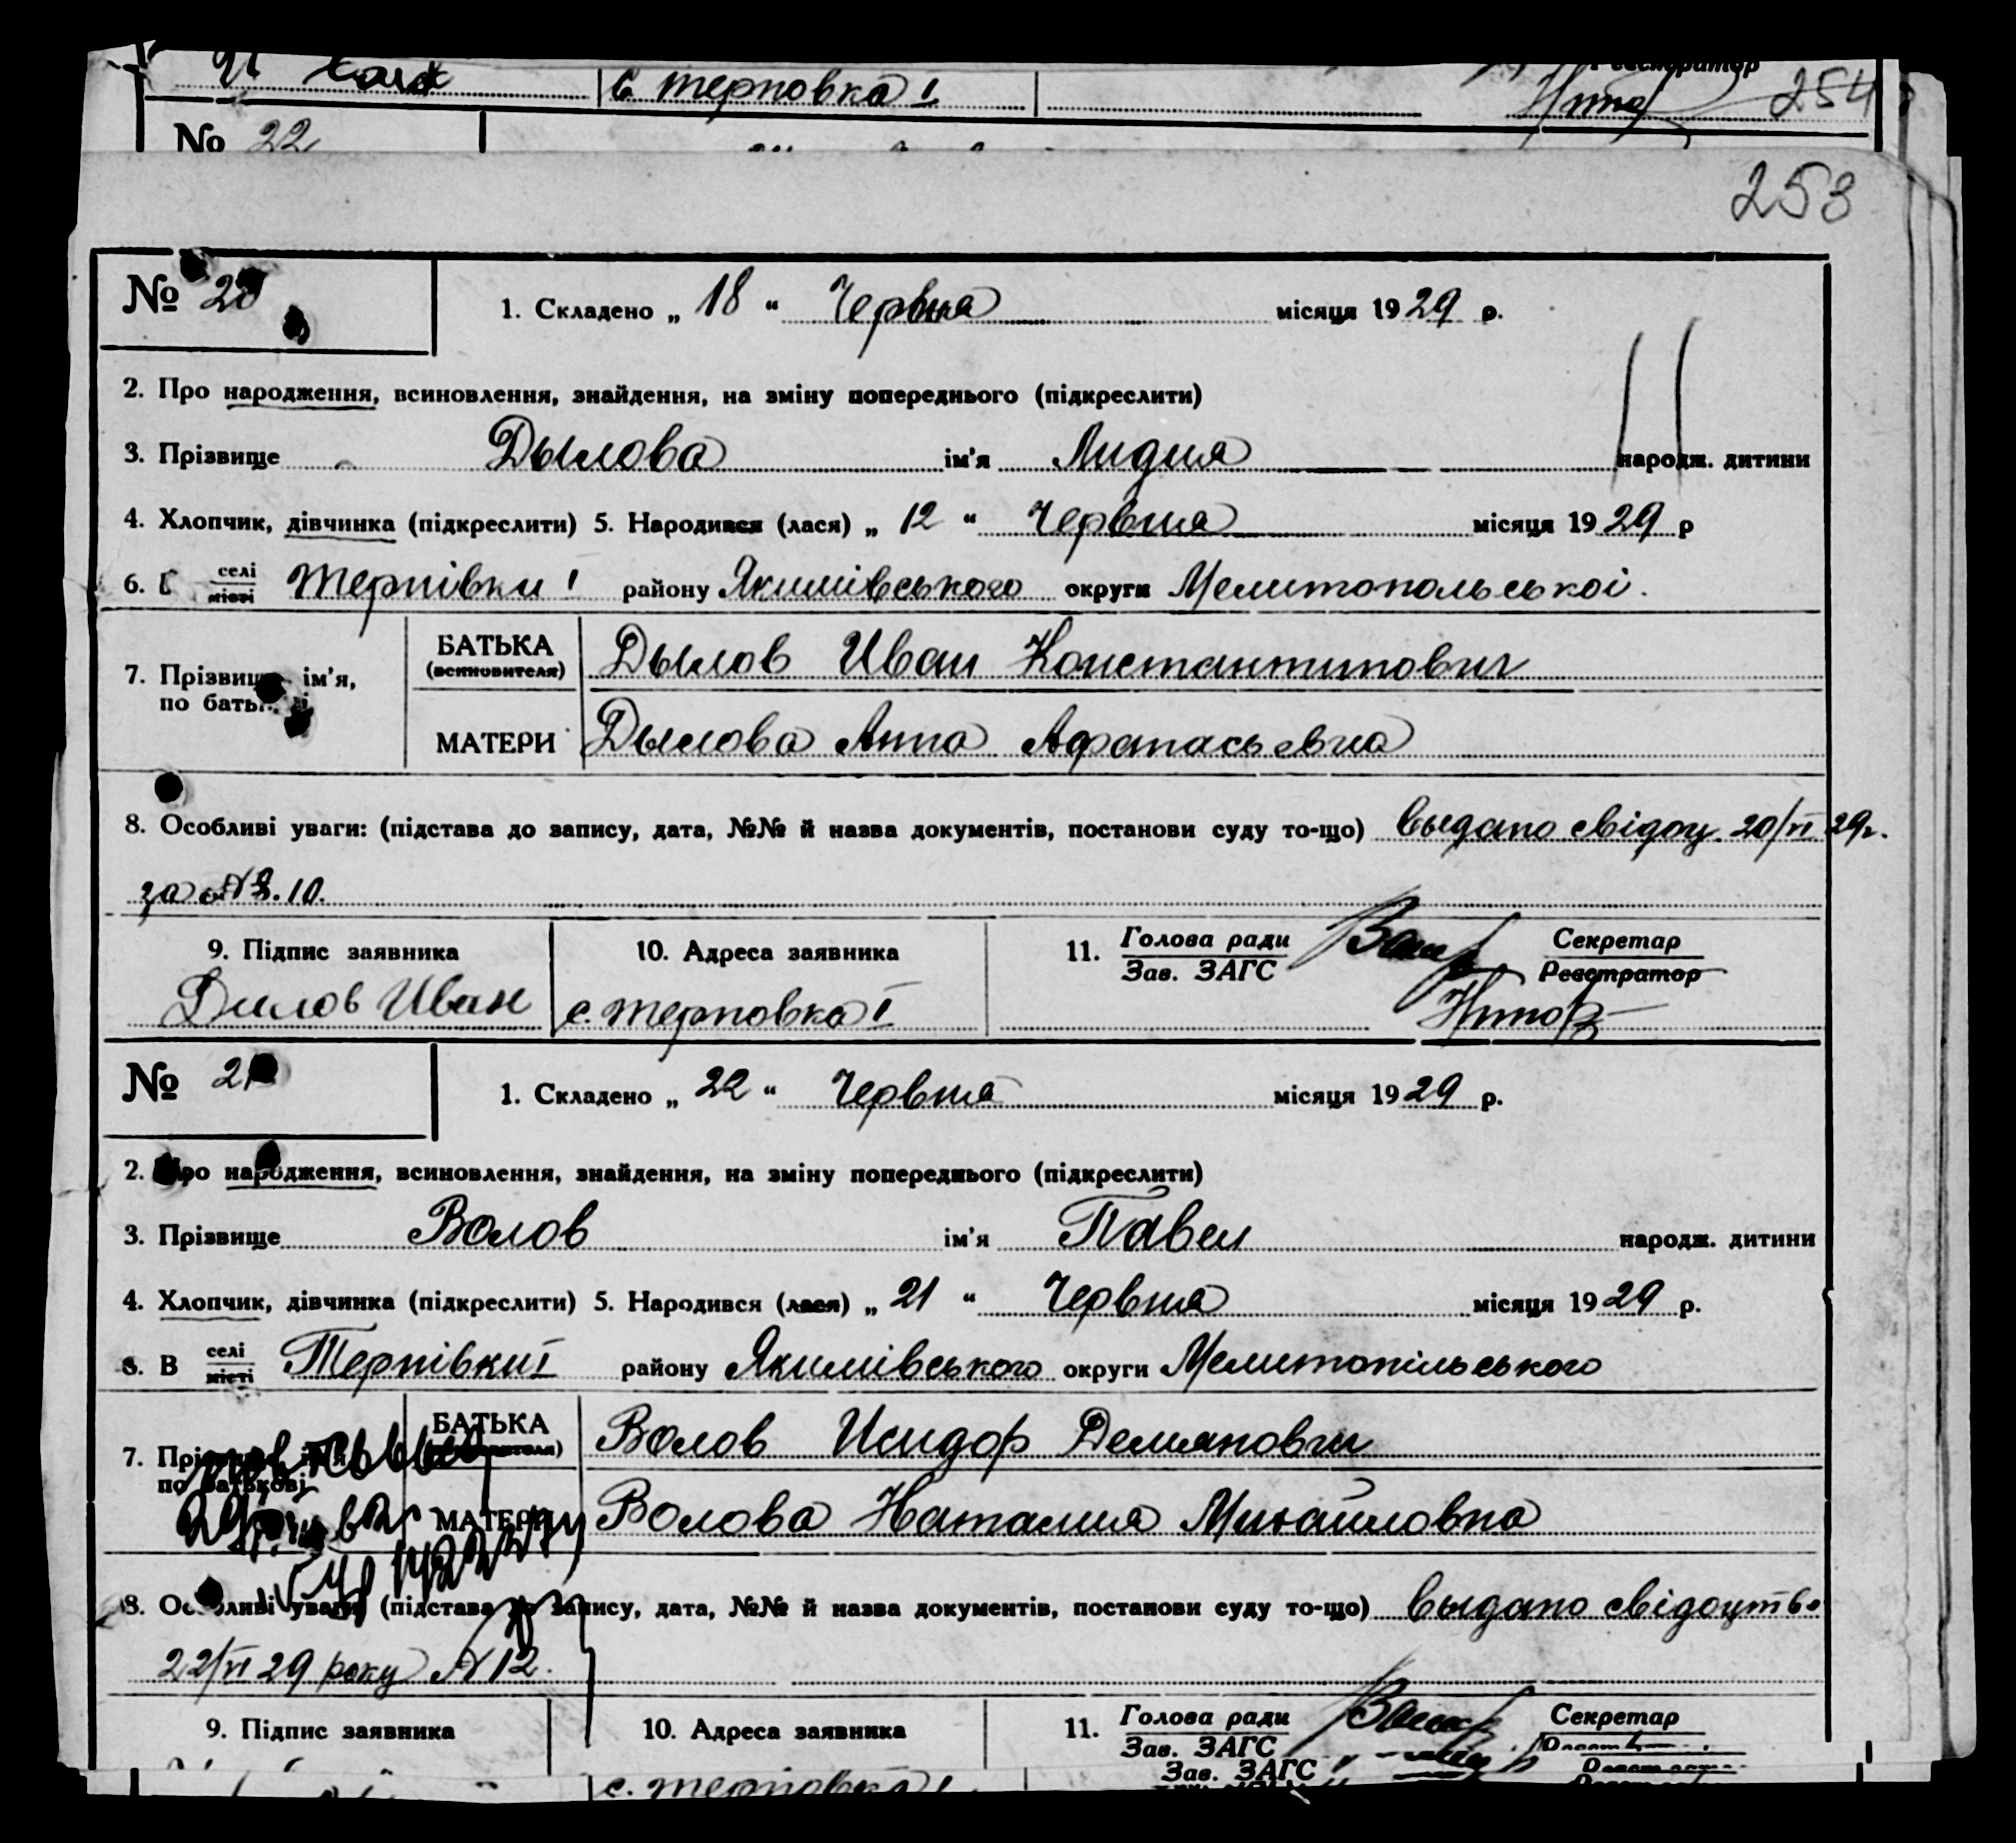 с. терновка I
254
No 22
253
№ 20
1. Складено „ 18 “ Червня місяця 1929 р.
2. Про народження, всиновлення, знайдення, на зміну попереднього (підкреслити)
3. Прізвище Дылова ім'я Лидия народж. дитини
4. Хлопчик, дівчинка (підкреслити) 5. Народився (лася) „ 12 “ Червня місяця 1929 р
6. селі місті Терпівки I району Якимівського округи Мелитопольської.
7. Прізвище, ім'я, БАТЬКА (всиновителя) Дылов Иван Константинович
по МАТЕРИ Дылова Анна Афанасьевна
8. Особливі уваги: (підстава до запису, дата, №№ й назва документів, постанови суду то-що) выдано свідоц. 20/VI 29г.
за №10.
9. Підпис заявника 10. Адреса заявника 11. Голова ради Секретар
Зав. ЗАГС Реєстратор
Дилов Иван с. терповка I
№ 21
1. Складено „ 22 “ Червня місяця 1929 р.
2. Про народження, всиновлення, знайдення, на зміну попереднього (підкреслити)
3. Прізвище Волов ім'я Павел народж. дитини
4. Хлопчик, дівчинка (підкреслити) 5. Народився (лася) „ 21 “ Червня місяця 1929 р.
6. В селі місті Терпівки I району Якимівського округи Мелитопільського
7. БАТЬКА Волов Исидор Демянович
по батькові МАТЕРИ Волова Наталия Михайловна
8. Особливі уваги (підстава до запису, дата, №№ й назва документів, постанови суду то-що) выдано свідоцтво
22/VI 29 року № 12.
9. Підпис заявника 10. Адреса заявника 11. Голова ради Секретар
Зав. ЗАГС
Зав. ЗАГС
с. терповка I